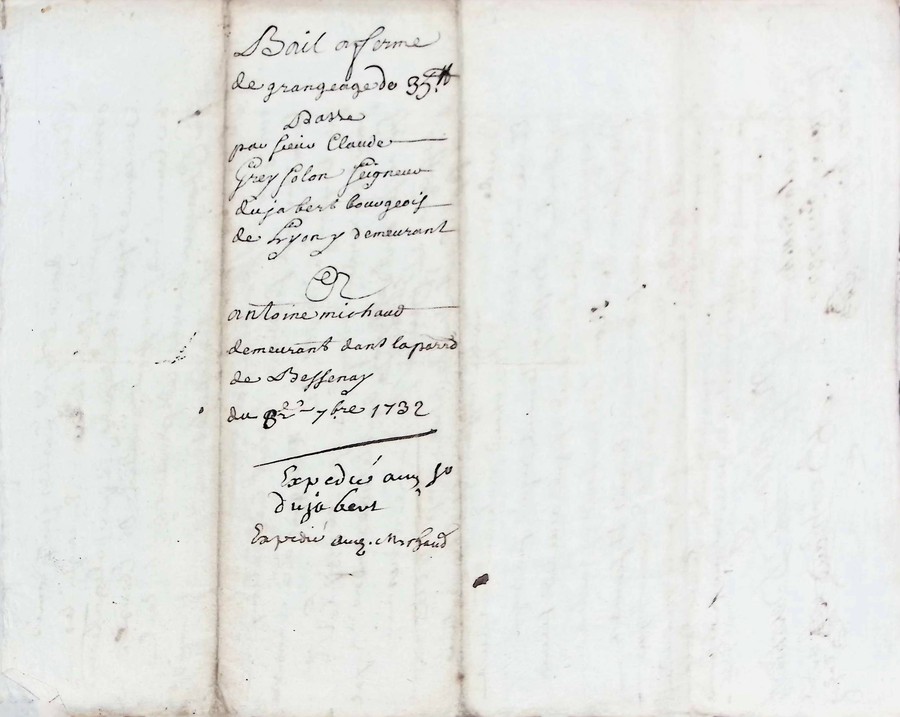 Bail afferme
de grangeage de 35tt
Passé
par sieur Claude
Greysolon seigneur
dujabert bourgeois
de Lyon y demeurant
Et
antoine michaud
demeurant dans la parr
de Bessenay
du 7bre 1732
Expedié aud sr
dujabert
Expedié aud. Michaud